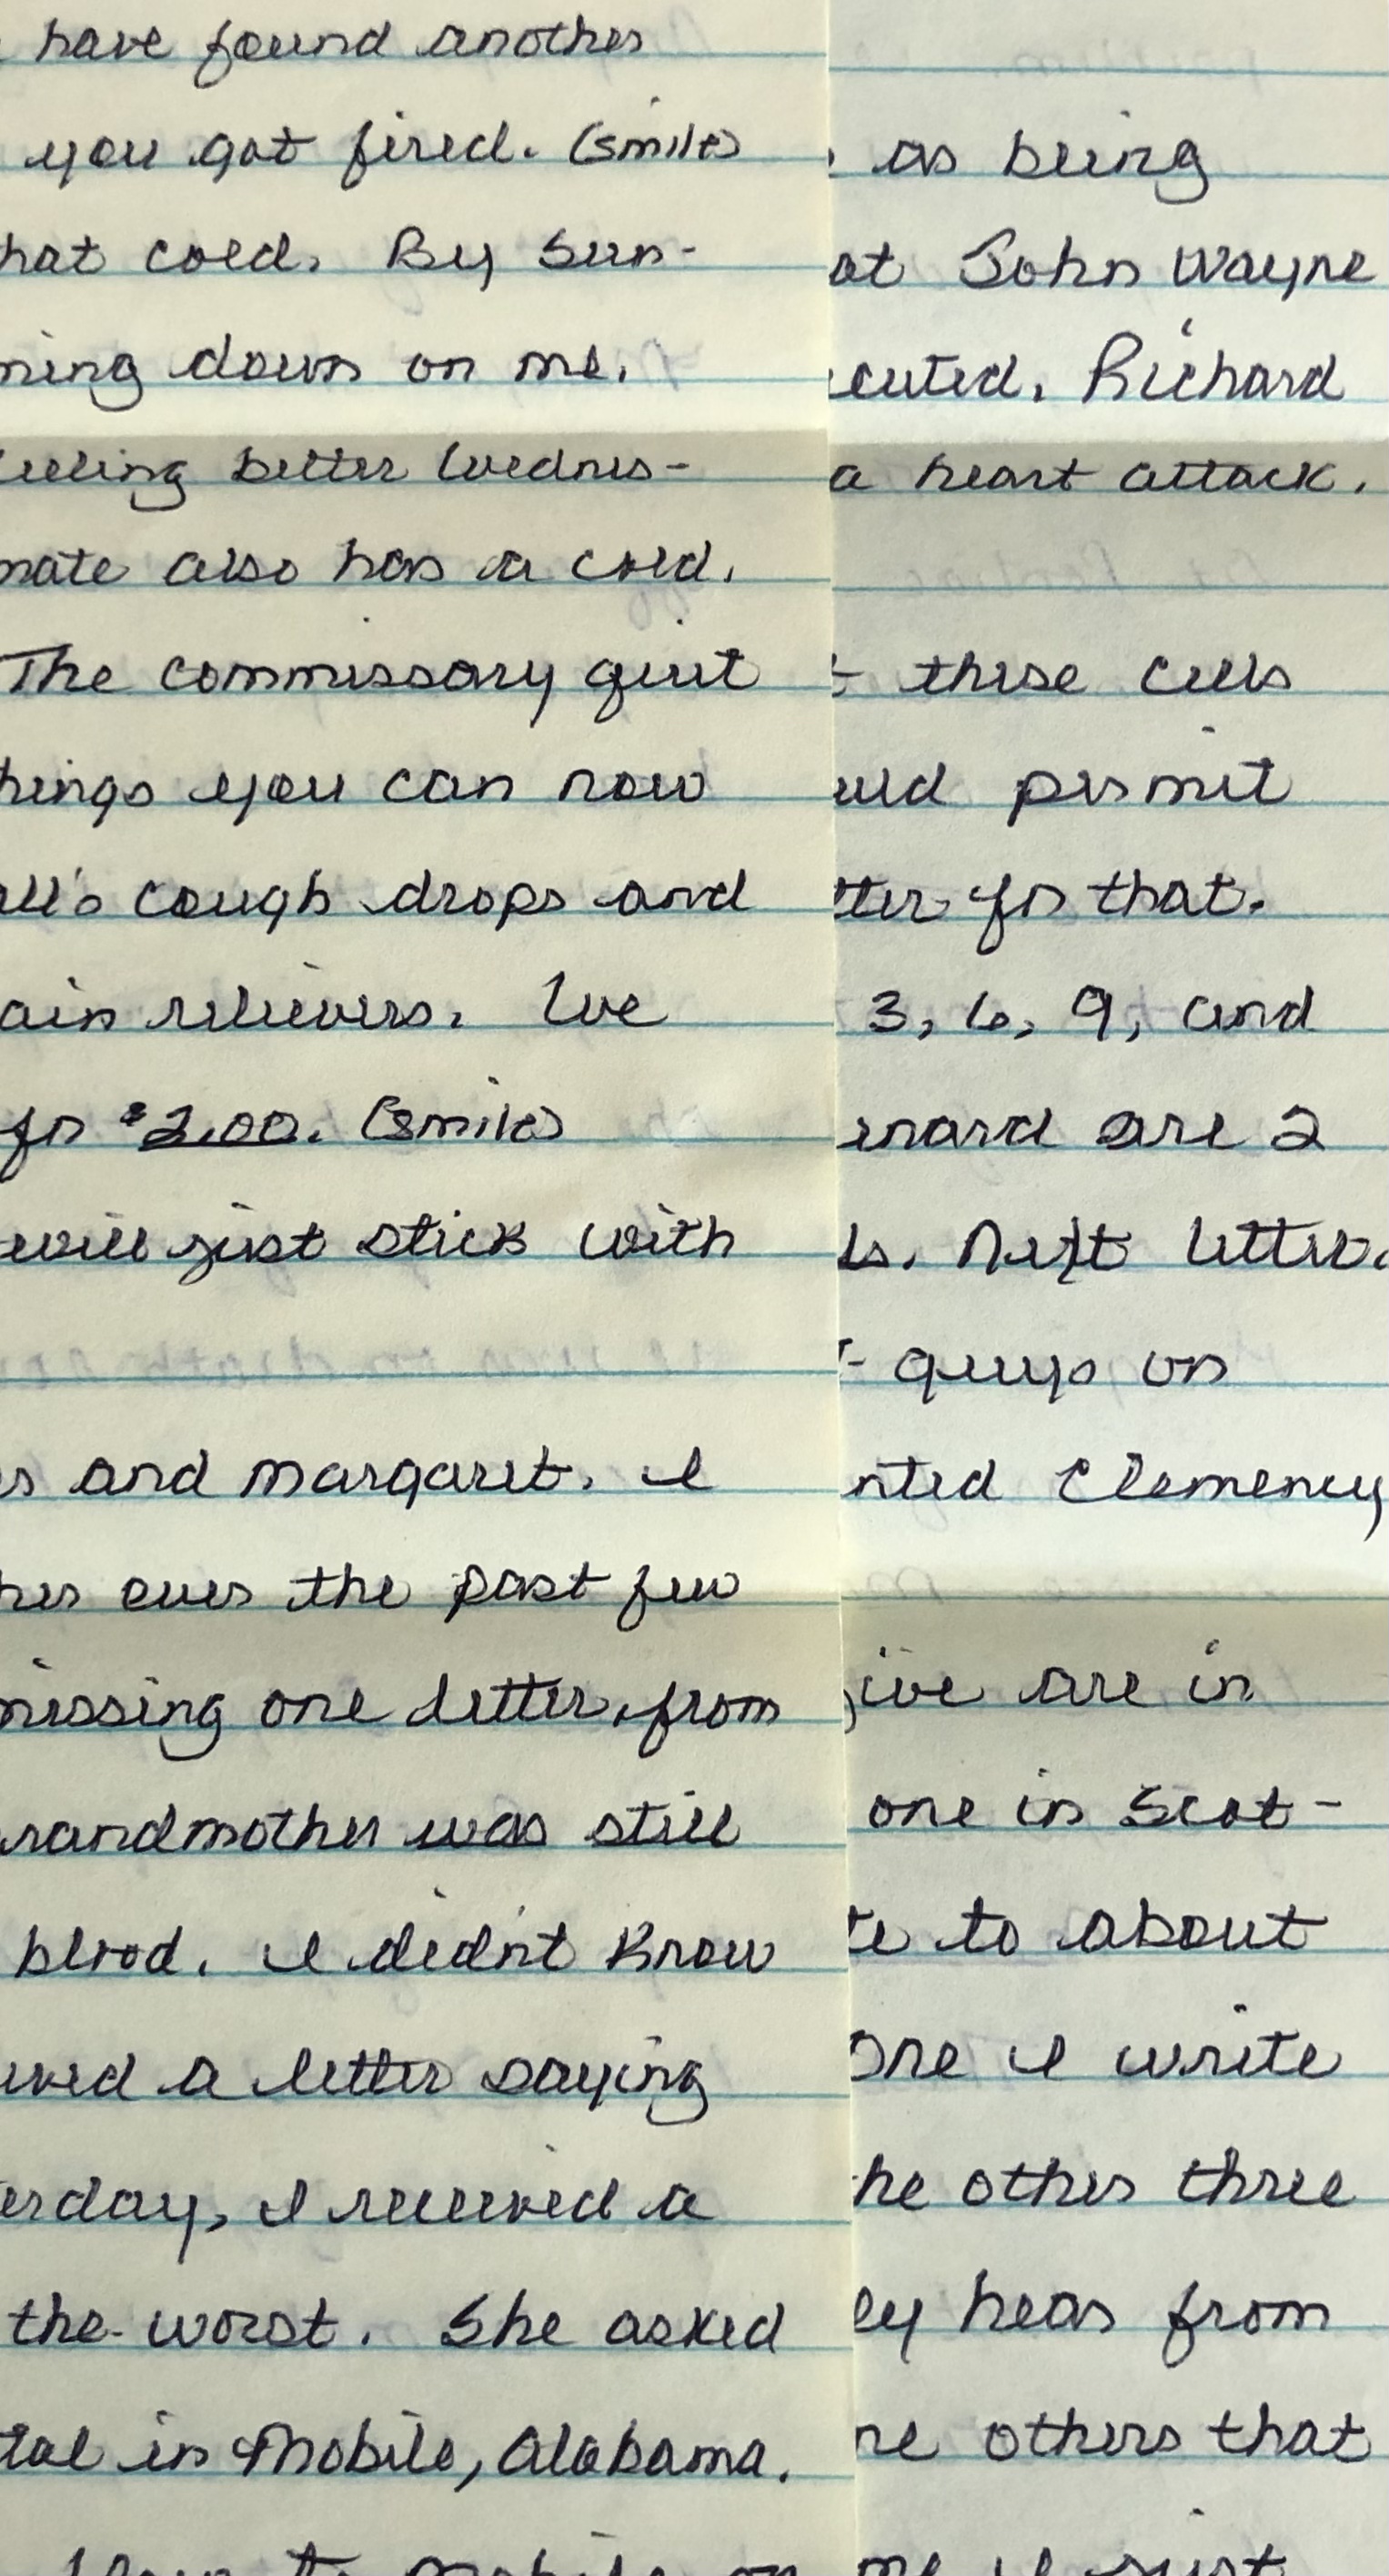 have found another
you got fired. (smile)
hat cold. By Sun-
ning down on me.
eeling better Wednes-
mate also has a cold.
The commissary quit
hings you can now
all's cough drops and
ain relievers. We
for $2.00. (smile)
will just stick with
and Margaret. I
her over the past few
missing one letter, from
randmother was still
blood. I didn't know
ived a letter saying
erday, I received a
the worst. She asked
tal in Mobile, Alabama.
as being
at John Wayne
cuted. Richard
a heart attack.
t these cells
uld permit
tter for that.
3, 6, 9, and
enard are 2
ls. Next letter.
guys on
nted Clemency
give are in
one in Scot-
te to about
One I write
he other three
ey hear from
he others that
me I just